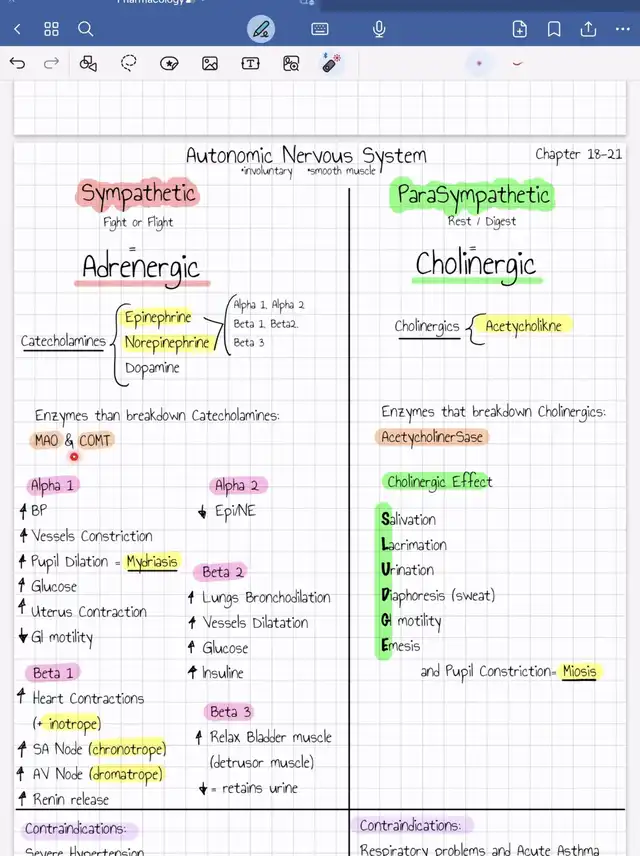 Pharmacology
Autonomic Nervous System
•involuntary •smooth muscle
Chapter 18-21
Sympathetic
Fight or Flight
=
Adrenergic
Catecholamines
Epinephrine
Norepinephrine
Dopamine
Alpha 1, Alpha 2
Beta 1, Beta2,
Beta 3
Enzymes than breakdown Catecholamines:
MAO & COMT
Alpha 1
↑ BP
↑ Vessels Constriction
↑ Pupil Dilation = Mydriasis
↑ Glucose
↑ Uterus Contraction
↓ GI motility
Beta 1
↑ Heart Contractions
(+ inotrope)
↑ SA Node (chronotrope)
↑ AV Node (dromatrope)
↑ Renin release
Alpha 2
↓ Epi/NE
Beta 2
↑ Lungs Bronchodilation
↑ Vessels Dilatation
↑ Glucose
↑ Insuline
Beta 3
↑ Relax Bladder muscle
(detrusor muscle)
↓ = retains urine
Contraindications:
Severe Hypertension
ParaSympathetic
Rest / Digest
=
Cholinergic
Cholinergics
Acetycholikne
Enzymes that breakdown Cholinergics:
AcetycholinerSase
Cholinergic Effect
Salivation
Lacrimation
Urination
Diaphoresis (sweat)
GI motility
Emesis
and Pupil Constriction= Miosis
Contraindications:
Respiratory problems and Acute Asthma